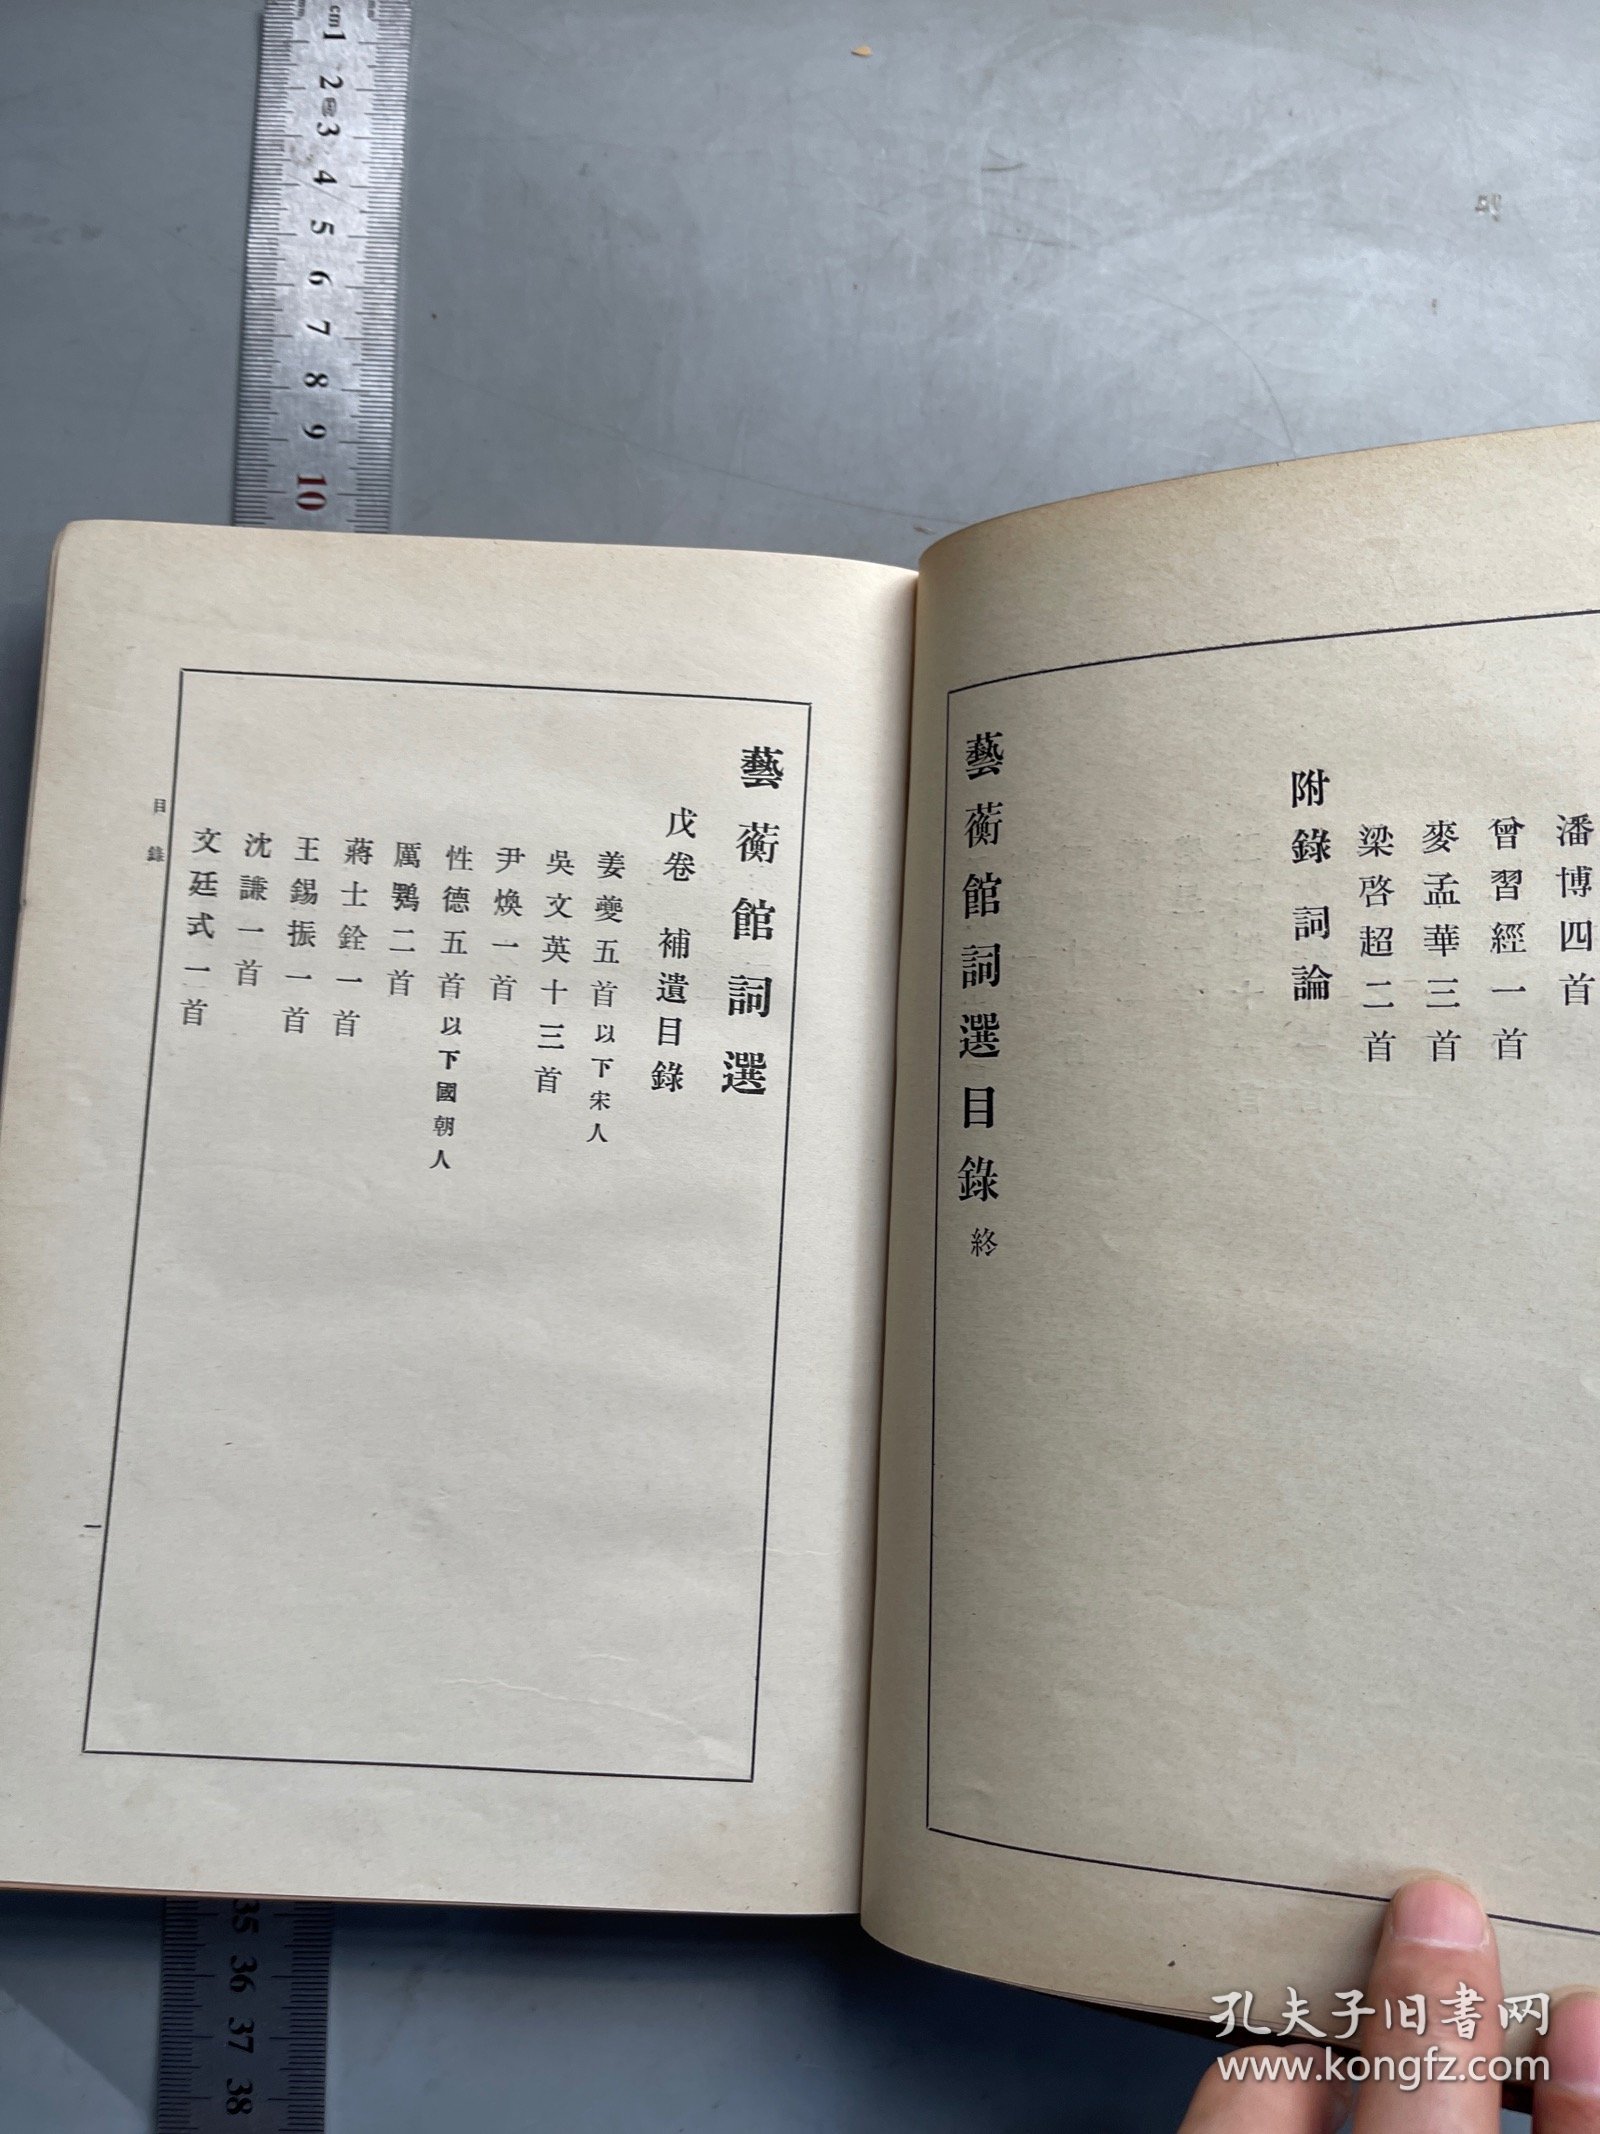 潘博四首
曾習經一首
麥孟華三首
梁啓超二首
附錄 詞論
藝蘅館詞選目錄 終
藝蘅館詞選
戊卷 補遺目錄
姜夔五首 以下宋人
吳文英十三首
尹煥一首
性德五首 以下國朝人
厲鶚二首
蔣士銓一首
王錫振一首
沈謙一首
文廷式一首
目錄
一
cm1 2 3 4 5 6 7 8 9 10
35 36 37 38
孔夫子旧书网
www.kongfz.com